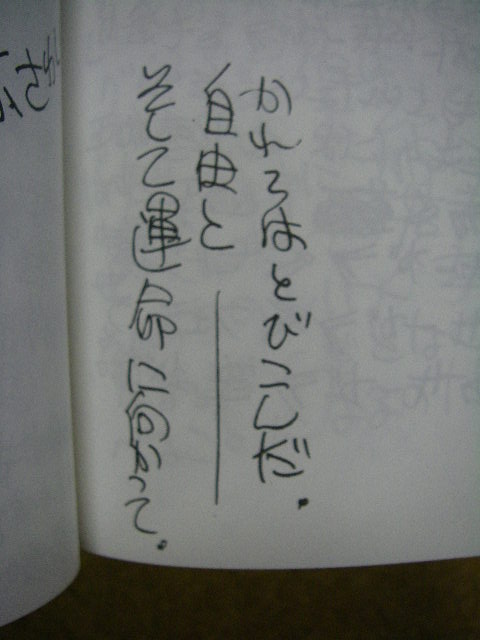 かれらはとびこんだ。
自由と——
そして運命に向かって。